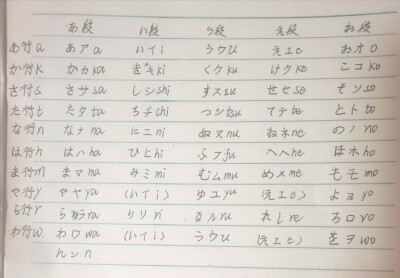 あ段 い段 う段 え段 お段
あ行a あアa いイi うウu えエe おオo
か行k かカka きキki くクku けケke こコko
さ行s さサsa しシshi すスsu せセse そソso
た行t たタta ちチchi つツtsu てテte とトto
な行n なナna にニni ぬヌnu ねネne のノno
は行h はハha ひヒhi ふフfu へヘhe ほホho
ま行m まマma みミmi むムmu めメme もモmo
や行y やヤya (いイi) ゆユyu (えエe) よヨyo
ら行r らラra りリri るルru れレre ろロro
わ行w わワwa (いイi) うウu (えエe) をヲwo
んンn